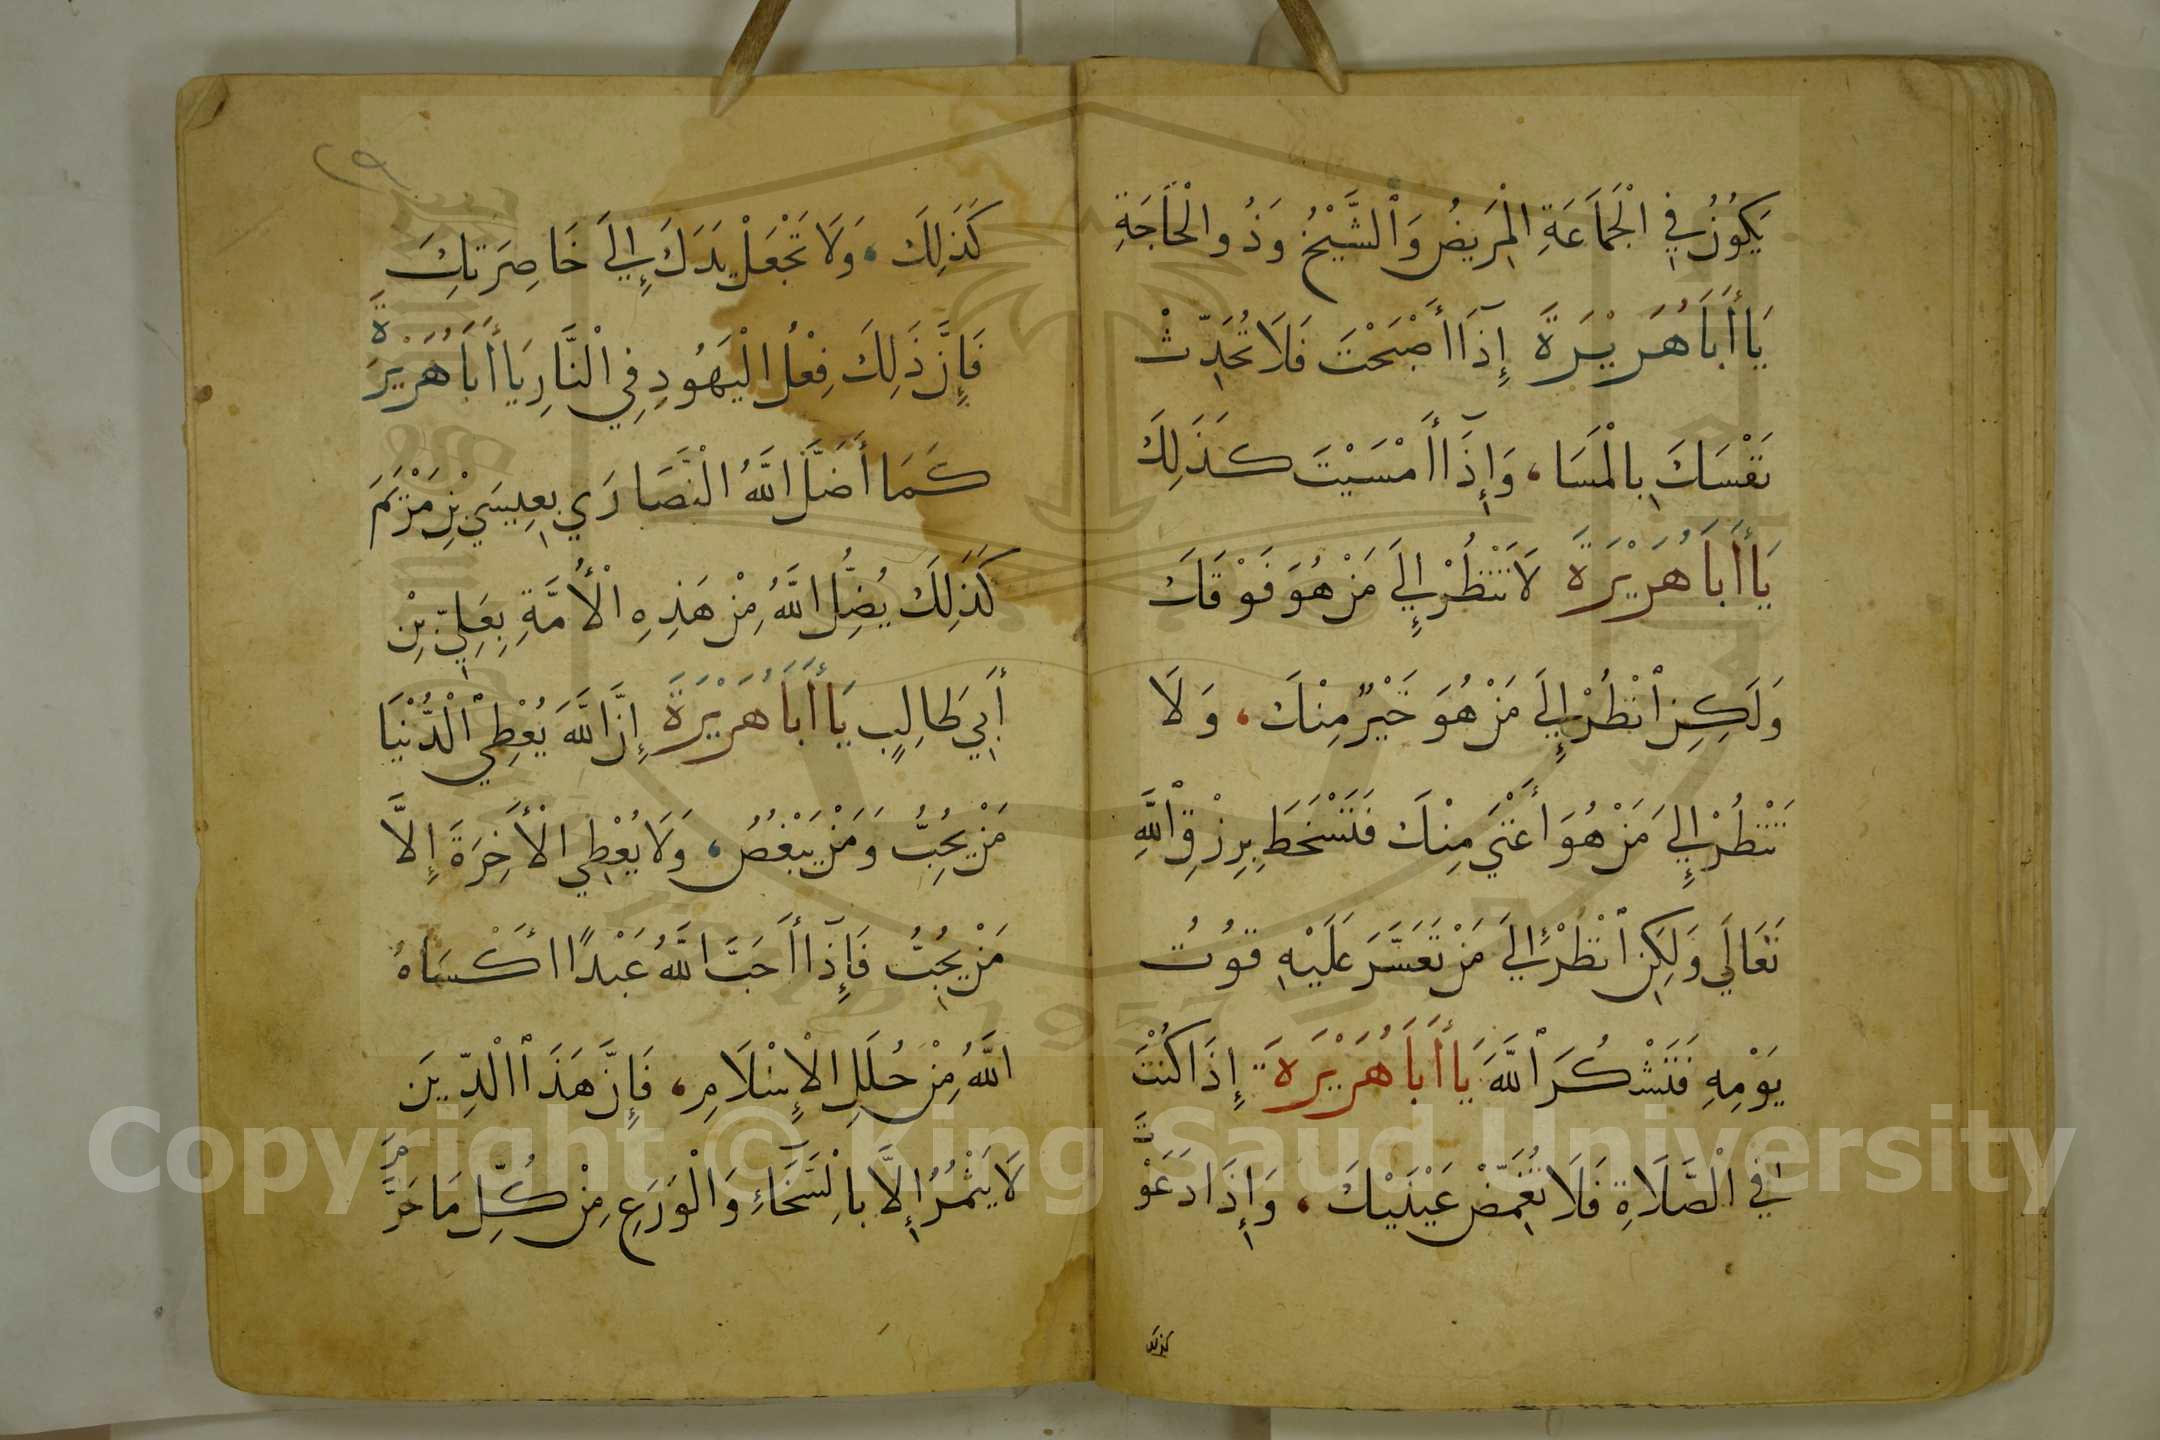 يَكُوْنُ فِي الْجَمَاعَةِ الْمَرِيضُ وَالشَّيْخُ وَذُوالْحَاجَةِ
يَا أَبَا هُرَيْرَةَ إِذَا أَصْبَحْتَ فَلَا تُحَدِّثْ
نَفْسَكَ بِالْمَسَا، وَإِذَا أَمْسَيْتَ كَذَلِكَ
يَا أَبَا هُرَيْرَةَ لَا تَنْظُرْ إِلَى مَنْ هُوَ فَوْقَكَ
وَلَكِنِ انْظُرْ إِلَى مَنْ هُوَ خَيْرٌ مِنْكَ، وَلَا
تَنْظُرْ إِلَى مَنْ هُوَ أَغْنَى مِنْكَ فَتَسْخَطَ بِرِزْقِ اللَّهِ
تَعَالَى وَلَكِنِ انْظُرْ إِلَى مَنْ تَعَسَّرَ عَلَيْهِ قُوْتُ
يَوْمِهِ فَتَشْكُرَ اللَّهَ يَا أَبَا هُرَيْرَةَ إِذَا كُنْتَ
فِي الصَّلَاةِ فَلَا تُغَمِّضْ عَيْنَيْكَ، وَإِذَا دَعَوْتَ
كذلك
كَذَلِكَ، وَلَا تَجْعَلْ يَدَكَ إِلَى خَاصِرَتِكَ
فَإِنَّ ذَلِكَ فِعْلُ الْيَهُودِ فِي النَّارِ يَا أَبَا هُرَيْرَةَ
كَمَا أَضَلَّ اللَّهُ النَّصَارَى بِعِيسَى بْنِ مَرْيَمَ
كَذَلِكَ يُضِلُّ اللَّهُ مِنْ هَذِهِ الْأُمَّةِ بِعَلِيِّ بْنِ
أَبِي طَالِبٍ يَا أَبَا هُرَيْرَةَ إِنَّ اللَّهَ يُعْطِي الْدُّنْيَا
مَنْ يُحِبُّ وَمَنْ يَبْغُضُ، وَلَا يُعْطِي الْأَخِرَةَ إِلَّا
مَنْ يُحِبُّ فَإِذَا أَحَبَّ اللَّهُ عَبْدًا أَكْسَاهُ
اللَّهُ مِنْ حُلَلِ الْإِسْلَامِ، فَإِنَّ هَذَا الْدِّينَ
لَا يَثْمُرُ إِلَّا بِالسَّخَاءِ وَالْوَرَعِ مِنْ كُلِّ مَا حَرَّمَ
Copyright © King Saud University
1957